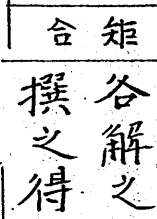 矩合
各解之
撰之得